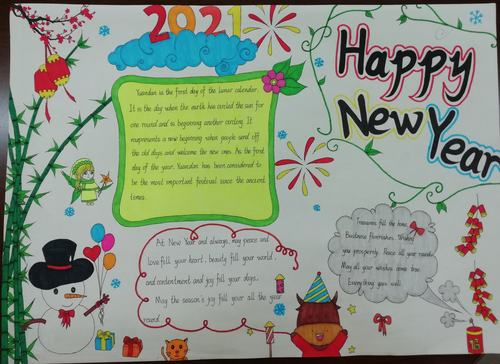 2021
Happy
New Year
Yuandan is the first day of the lunar calender.
It is the day when the earth has circled the sun for
one round and is beginning another circling. It
represents a new beginning when people send off
the old days and welcome the new ones. As the first
day of the year, Yuandan has been considered to
be the most important festival since the ancient
times.
At New Year and always, may peace and
love fill your heart, beauty fill your world,
and contentment and joy fill your days.
May the season's joy fill your all the year
round
Treasures fill the home
Business flourishes. Wishing
you prosperity. Peace all year round.
May all your wishes come true
Everything goes well.